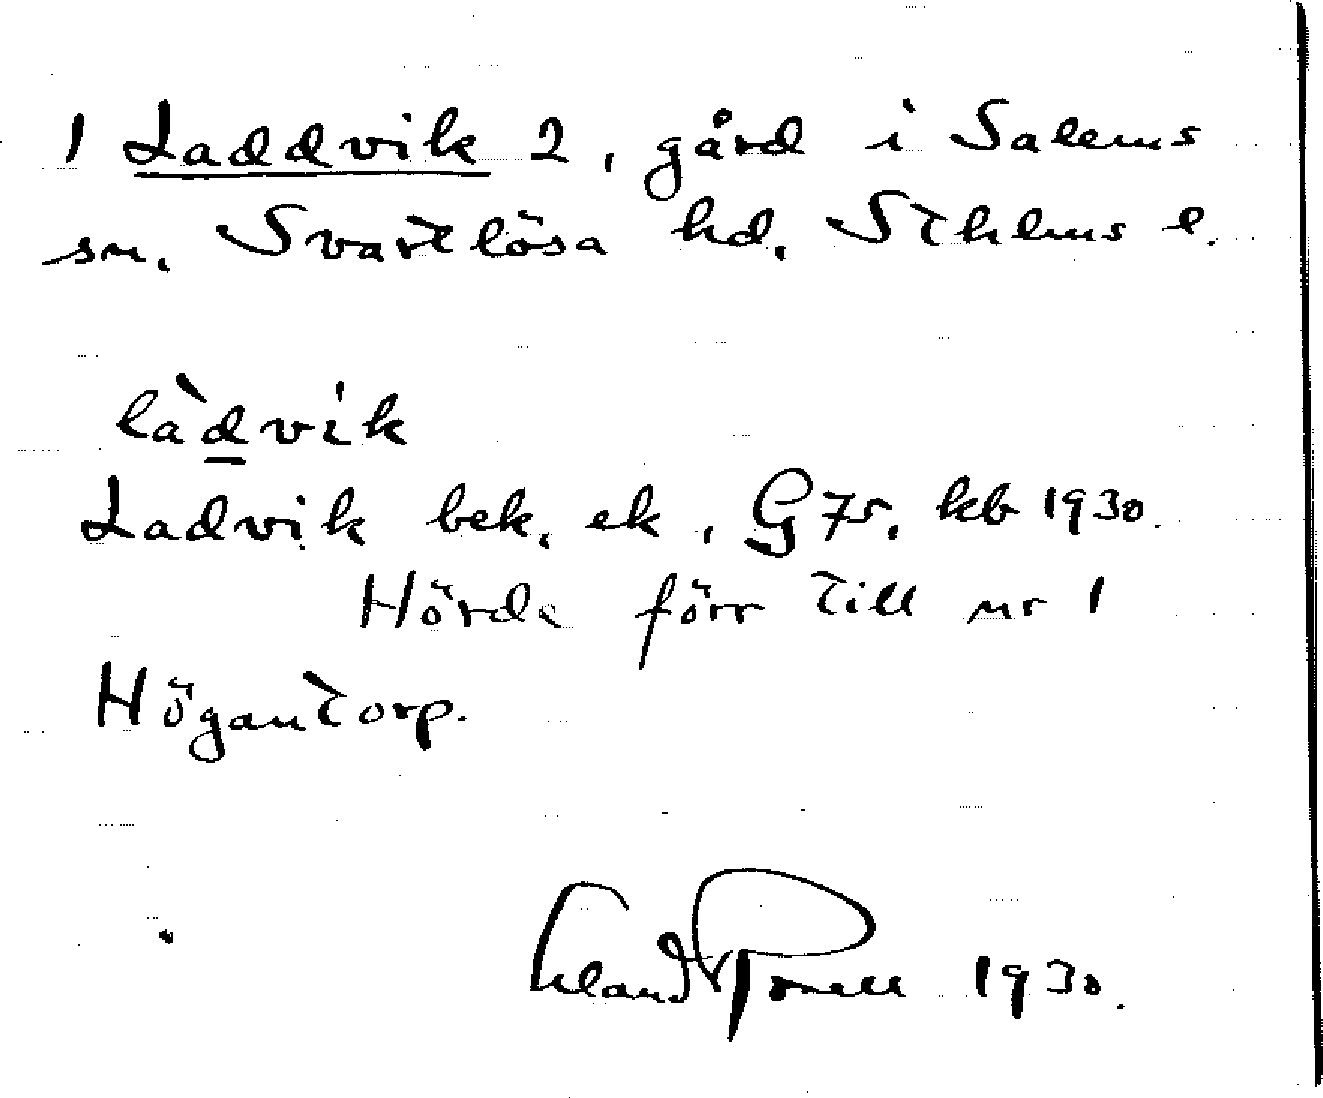 1 Laddvik 2, gård i Salems
sn. Svartlösa hd. Sthlms l.
làdvik
Ladvik bek. ek, G75, kb 1930.
Hörde förr till nr 1
Högantorp.
1930.